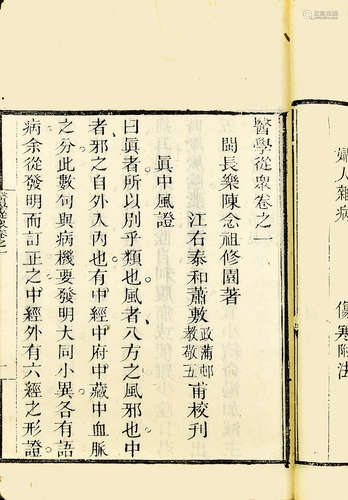 婦人雜病
傷寒附法
醫學從衆卷之一
閩長樂陳念祖修園著
江右泰和蕭敷政蒲邨敎敬五甫校刊
眞中風證
曰眞者所以別乎類也風者八方之風邪也中
者邪之自外入內也有中經中府中藏中血脈
之分此數句與病機要發明大同小異各有語
病余從發明而訂正之中經外有六經之形證